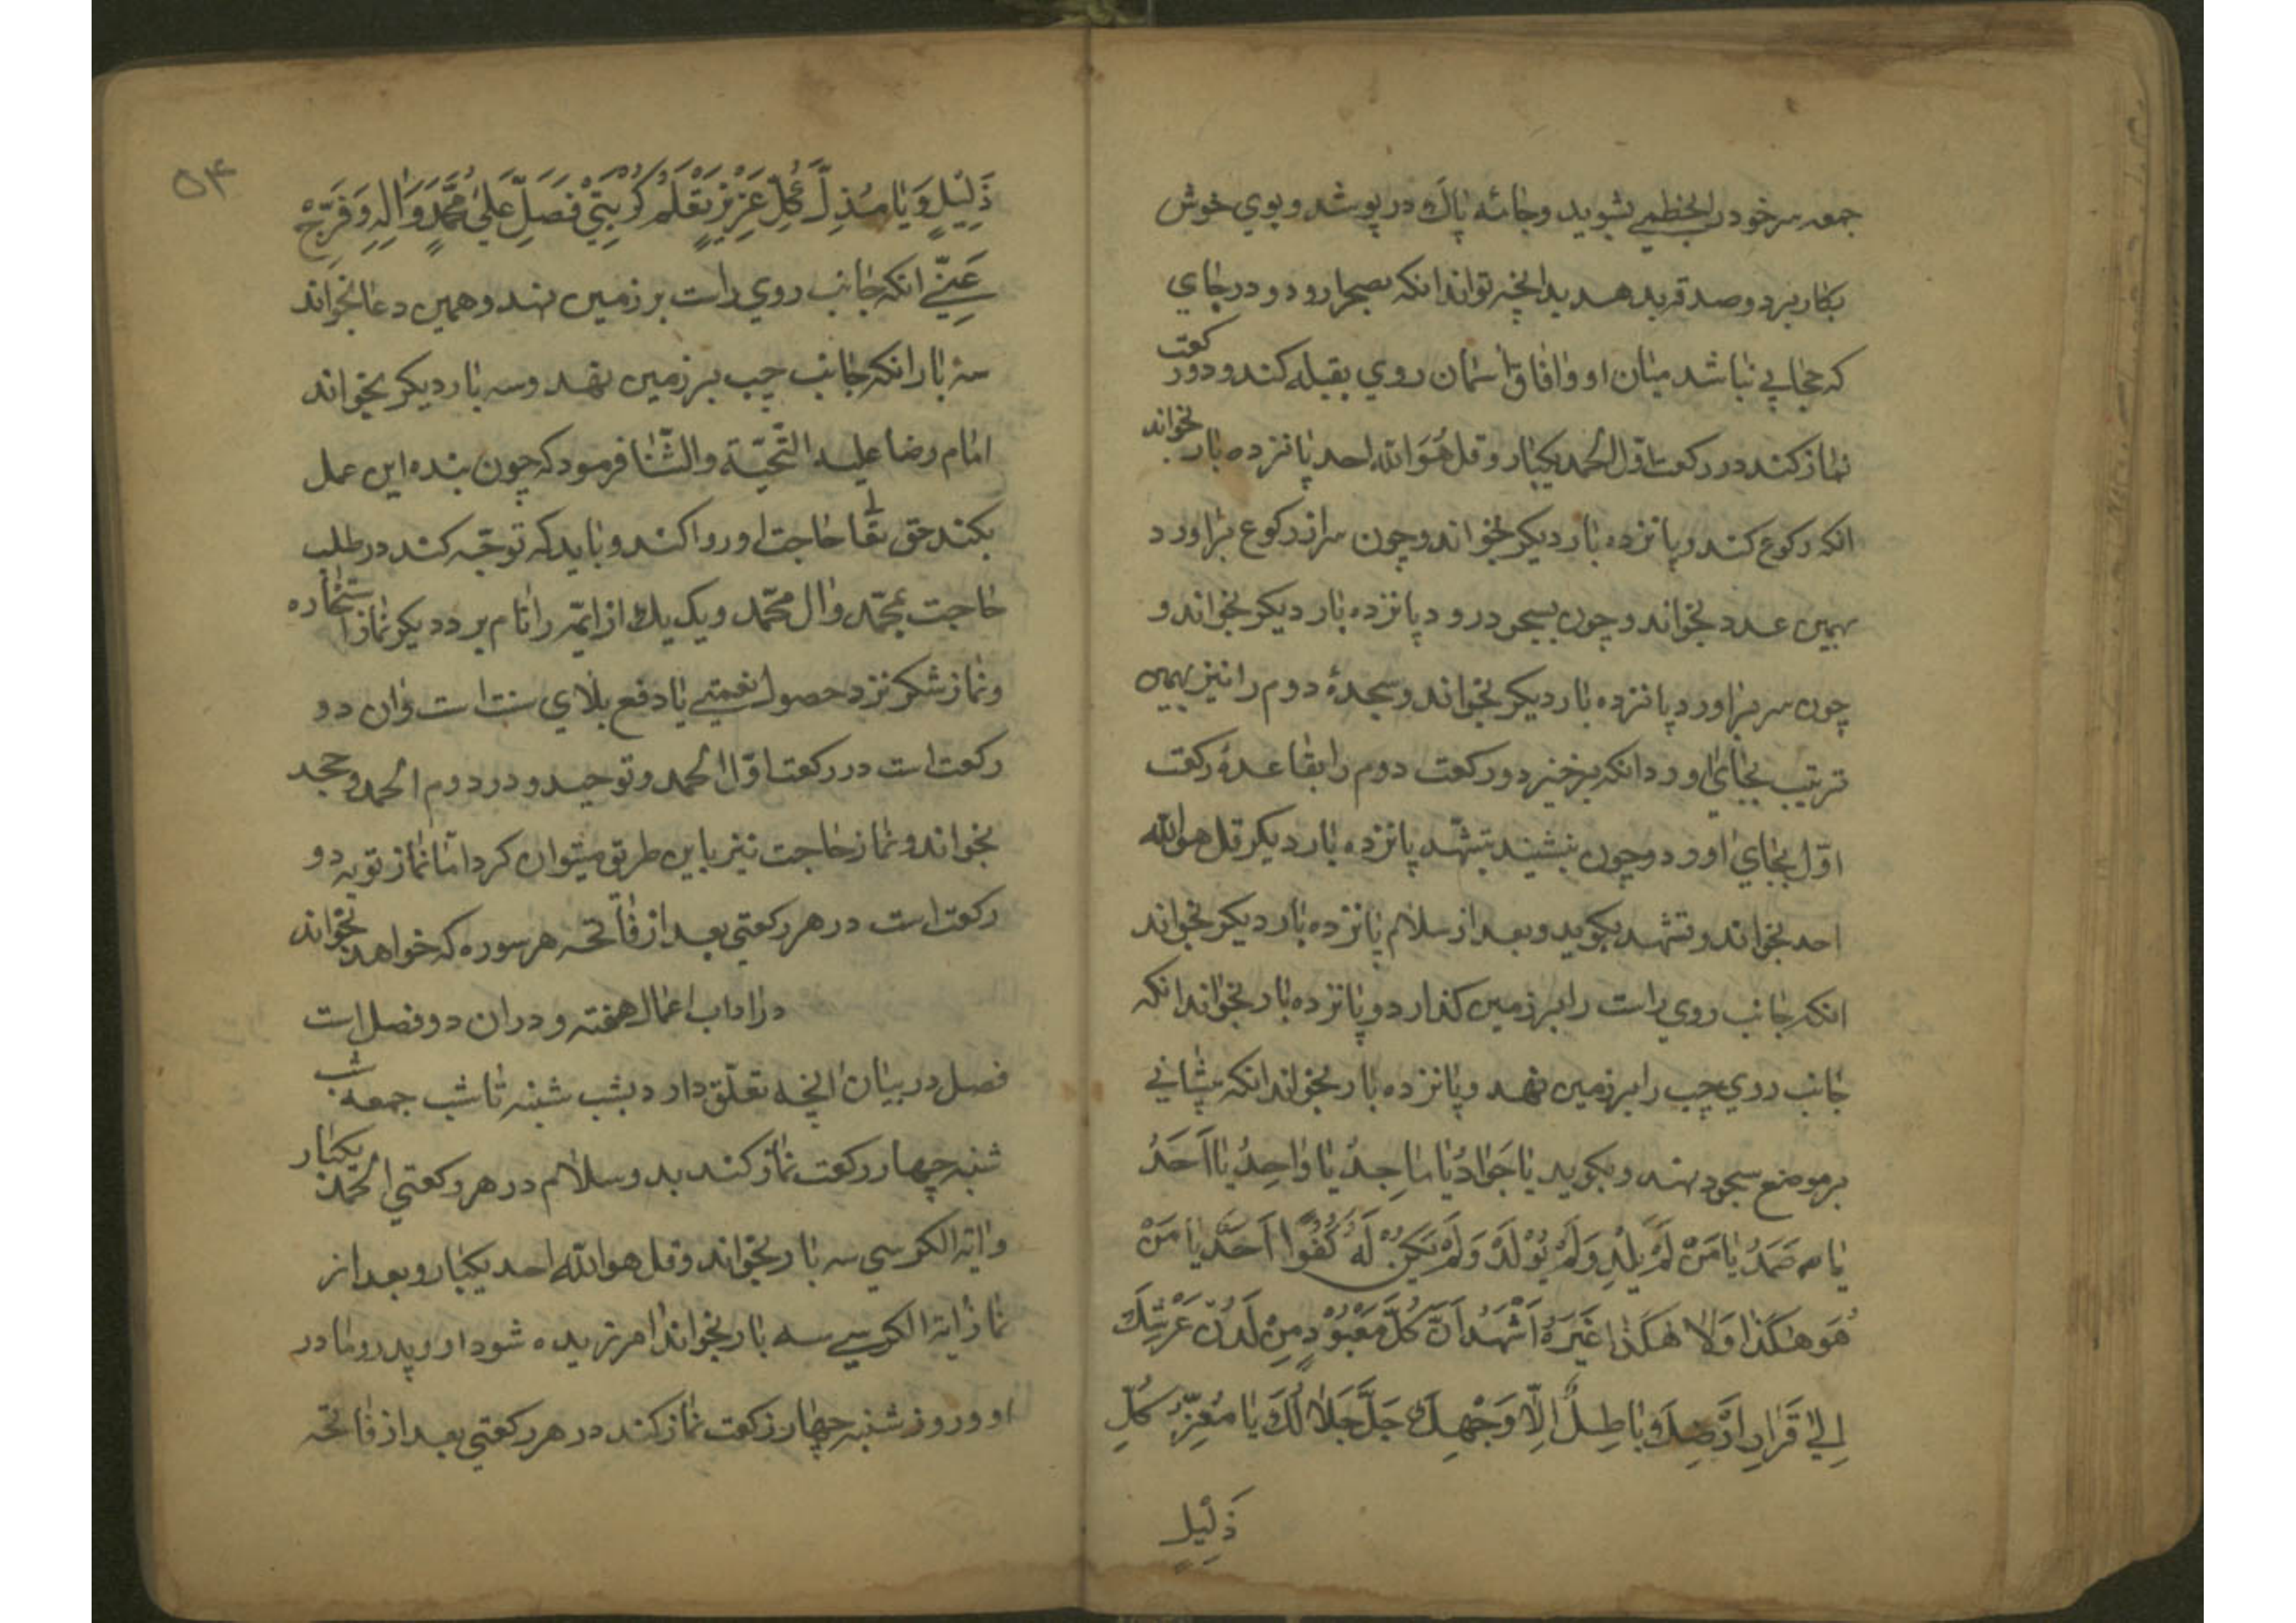 جمعه سر خود را بخطمی بشوید و جامهٔ پاک در پوشد و بوی خوش
بکار برد و صدقه بدهد بدانچه تواند انکه بصحرا رود و در جای
که حجابی نباشد میان او و افاق اسمان روی بقبله کند و دو رکعت
نماز کند در رکعت اول الحمد یکبار و قل هُوَ الله احد پانزده بار بخواند
انکه رکوع کند و پانزده بار دیکر بخواند و چون سر از رکوع براورد
بهمین عدد بخواند و چون بسجود رود پانزده بار دیکر بخواند و
چون سر براورد پانزده بار دیکر بخواند و سجدهٔ دوم را نیز بهمین
ترتیب بجای اورد انکه برخیزد و رکعت دوم را بقاعدهٔ رکعت
اوّل بجای اورد و چون بنشیند بتشهّد پانزده بار دیکر قل هو الله
احد بخواند و تشهد بکوید و بعد از سلام پانزده بار دیکر بخواند
انکه جانب روی راست را بر زمین کذارد و پانزده بار بخواند انکه
جانب روی چپ را بر زمین نهد و پانزده بار بخواند انکه پیشانی
بر موضع سجود نهد و بکوید یا جَوادُ یا ماجِدُ یا واحِدُ یا اَحَدُ
یا صَمَدُ یا مَنْ لَمْ یَلِدْ وَلَمْ یُوْلَدْ وَلَمْ یَکُنْ لَهُ کُفُوًا اَحَدٌ یا مَنْ
هُوَ هٰکَذا وَلا هٰکَذا غَیْرُهُ اَشْهَدُ اَنَّ کُلَّ مَعْبُوْدٍ مِنْ لَدُنْ عَرْشِکَ
اِلیٰ قَرارِ اَرْضِکَ باطِلٌ اِلّا وَجْهِکَ جَلَّ جَلالُکَ یا مُعِزَّ کُلِّ
ذَلِیْلٍ
۵۴
ذَلِیْلٍ وَ یا مُذِلَّ کُلِّ عَزِیْزٍ تَعْلَمُ کُرْبَتِیْ فَصَلِّ عَلیٰ مُحَمَّدٍ وَاٰلِهِ وَفَرِّجْ
عَنِّیْ انکه جانب روی راست بر زمین نهد و همین دعا بخواند
سه بار انکه جانب چپ بر زمین نهد و سه بار دیکر بخواند
امام رضا علیه التّحیّة والثّنا فرمود که چون بنده این عمل
بکند حق تعا حاجت او روا کند و باید که توجّه کند در طلب
حاجت بمحمّد وال محمّد و یک یک از ایمّه را نام برد دیکر نماز استخاره
و نماز شکر نزد حصول نعمتی یا دفع بلای سنت است وان دو
رکعت است در رکعت اوّل الحمد و توحید و در دوم الحمد و جحد
بخواند و نماز حاجت نیز باین طریق میتوان کرد امّا نماز توبه دو
رکعت است در هر رکعتی بعد از فاتحه هر سوره که خواهد بخواند
در اداب اعمال هفته و دران دو فصل است
فصل در بیان انچه تعلّق دارد بشب شنبه تا شب جمعه شب
شنبه چهار رکعت نماز کند بدو سلام در هر رکعتی الحمد یکبار
وایة الکرسی سه بار بخواند و قل هو الله احد یکبار و بعد از
نماز ایة الکرسی سه بار بخواند امرزیده شود او و پدر و مادر
او و روز شنبه چهار رکعت نماز کند در هر رکعتی بعد از فاتحه